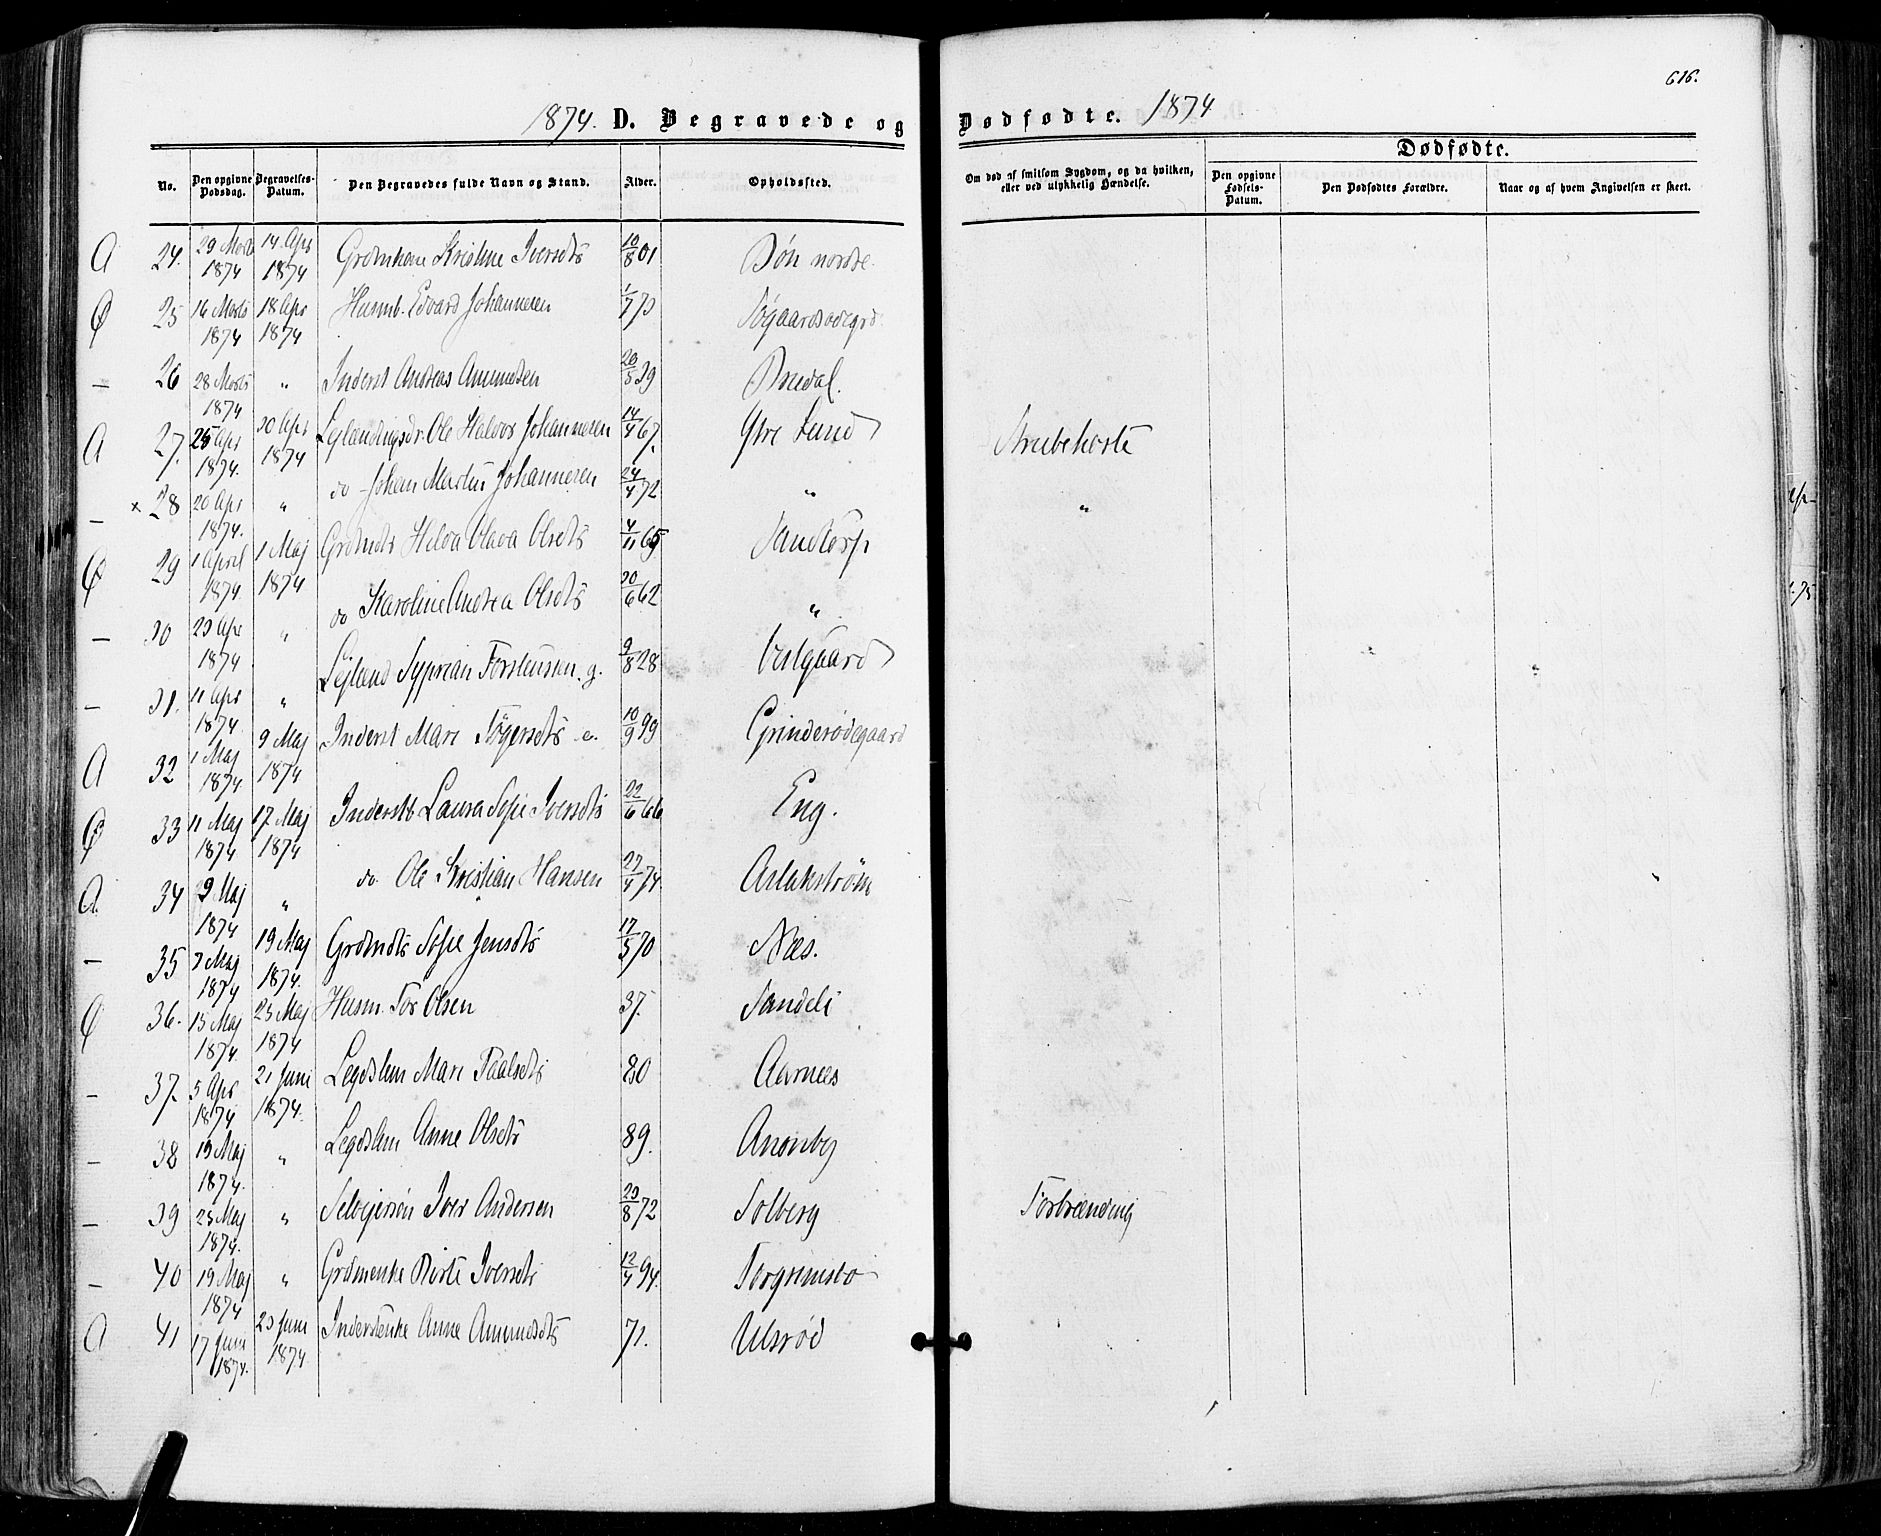 616.
1874. D. Begravede og Dødfødte. 1874
No. Den opgivne Dødsdag. Begravelses-Datum. Den Begravedes fulde Navn og Stand. Alder. Opholdssted. Om død af smitsom Sygdom, og da hvilken, eller ved ulykkelig Hændelse. Dødfødte.
Den opgivne Fødsels-Datum. Den Dødfødtes Forældre. Naar og af hvem Angivelsen er skeet.
A 24. 29 Marts 1874 14 Apr 1874 Kristine Iversdtr 10/8 01 Bøn nordre
Ø 25 16 Marts 1874 18 Apr 1874 Husmb. Edvard Johannesen 1/7 73
— 26 28 Marts 1874 " Inderst Andreas Amundsen 20/5 39 Bredal.
A 27. 25 Apr 1874. 30 Apr 1874 Ole Halvor Johannesen 14/4 67. Ytre Lund Strubehoste
— × 28 20 Apr 1874. " do Johan Martin Johannesen 24/4 72 " "
Ø 29 1 April 1874. 1 Maj 1874 Grdmdtr Helva Olava Olsdtr 4/11 65 Sandtorp
— 30 23 Apr 1874 " do Karoline Andrea Olsdtr 30/6 62 "
— 31. 11 Apr 1874. " Leilænd Syprian Torstensen. g. 9/8 28 Vestgaard
A 32 1 Maj 1874 9 Maj 1874 Inderst Mari 10/9 99 Grinderødegaard
Ø 33 11 Maj 1874 17 Maj 1874 Laura Sofie Iversdtr 22/6 66 Eng.
A. 34 9 Maj 1874 " do Ole Kristian Hansen 27/4 74. Aslakstrøm
— 35 3 Maj 1874 19 Maj 1874. Grdmdtr Sofie Jensdtr 17/5 70 Næs.
Ø 36. 15 Maj 1874. 23 Maj 1874 Husm. Tor Olsen 37. Sandeli
— 37. 5 Apr 1874 21 Juni 1874. Legdslem Mari Paalsdtr 80 Aarnæs
— 38 19 Maj 1874. " Legdslem Anne Olsdtr 89.
— 39 25 Maj 1874. " Selveiersøn Iver Andersen 29/8 72 Solberg Forbrænding
— 40 19 Maj 1874 " Grdmenke Birte Iversdtr 12/4 94. Torgrimsbø
A 41 17 Juni 1874. 23 Juni 1874 Inderstenke Anne Amundsdtr 71. Ulsrød